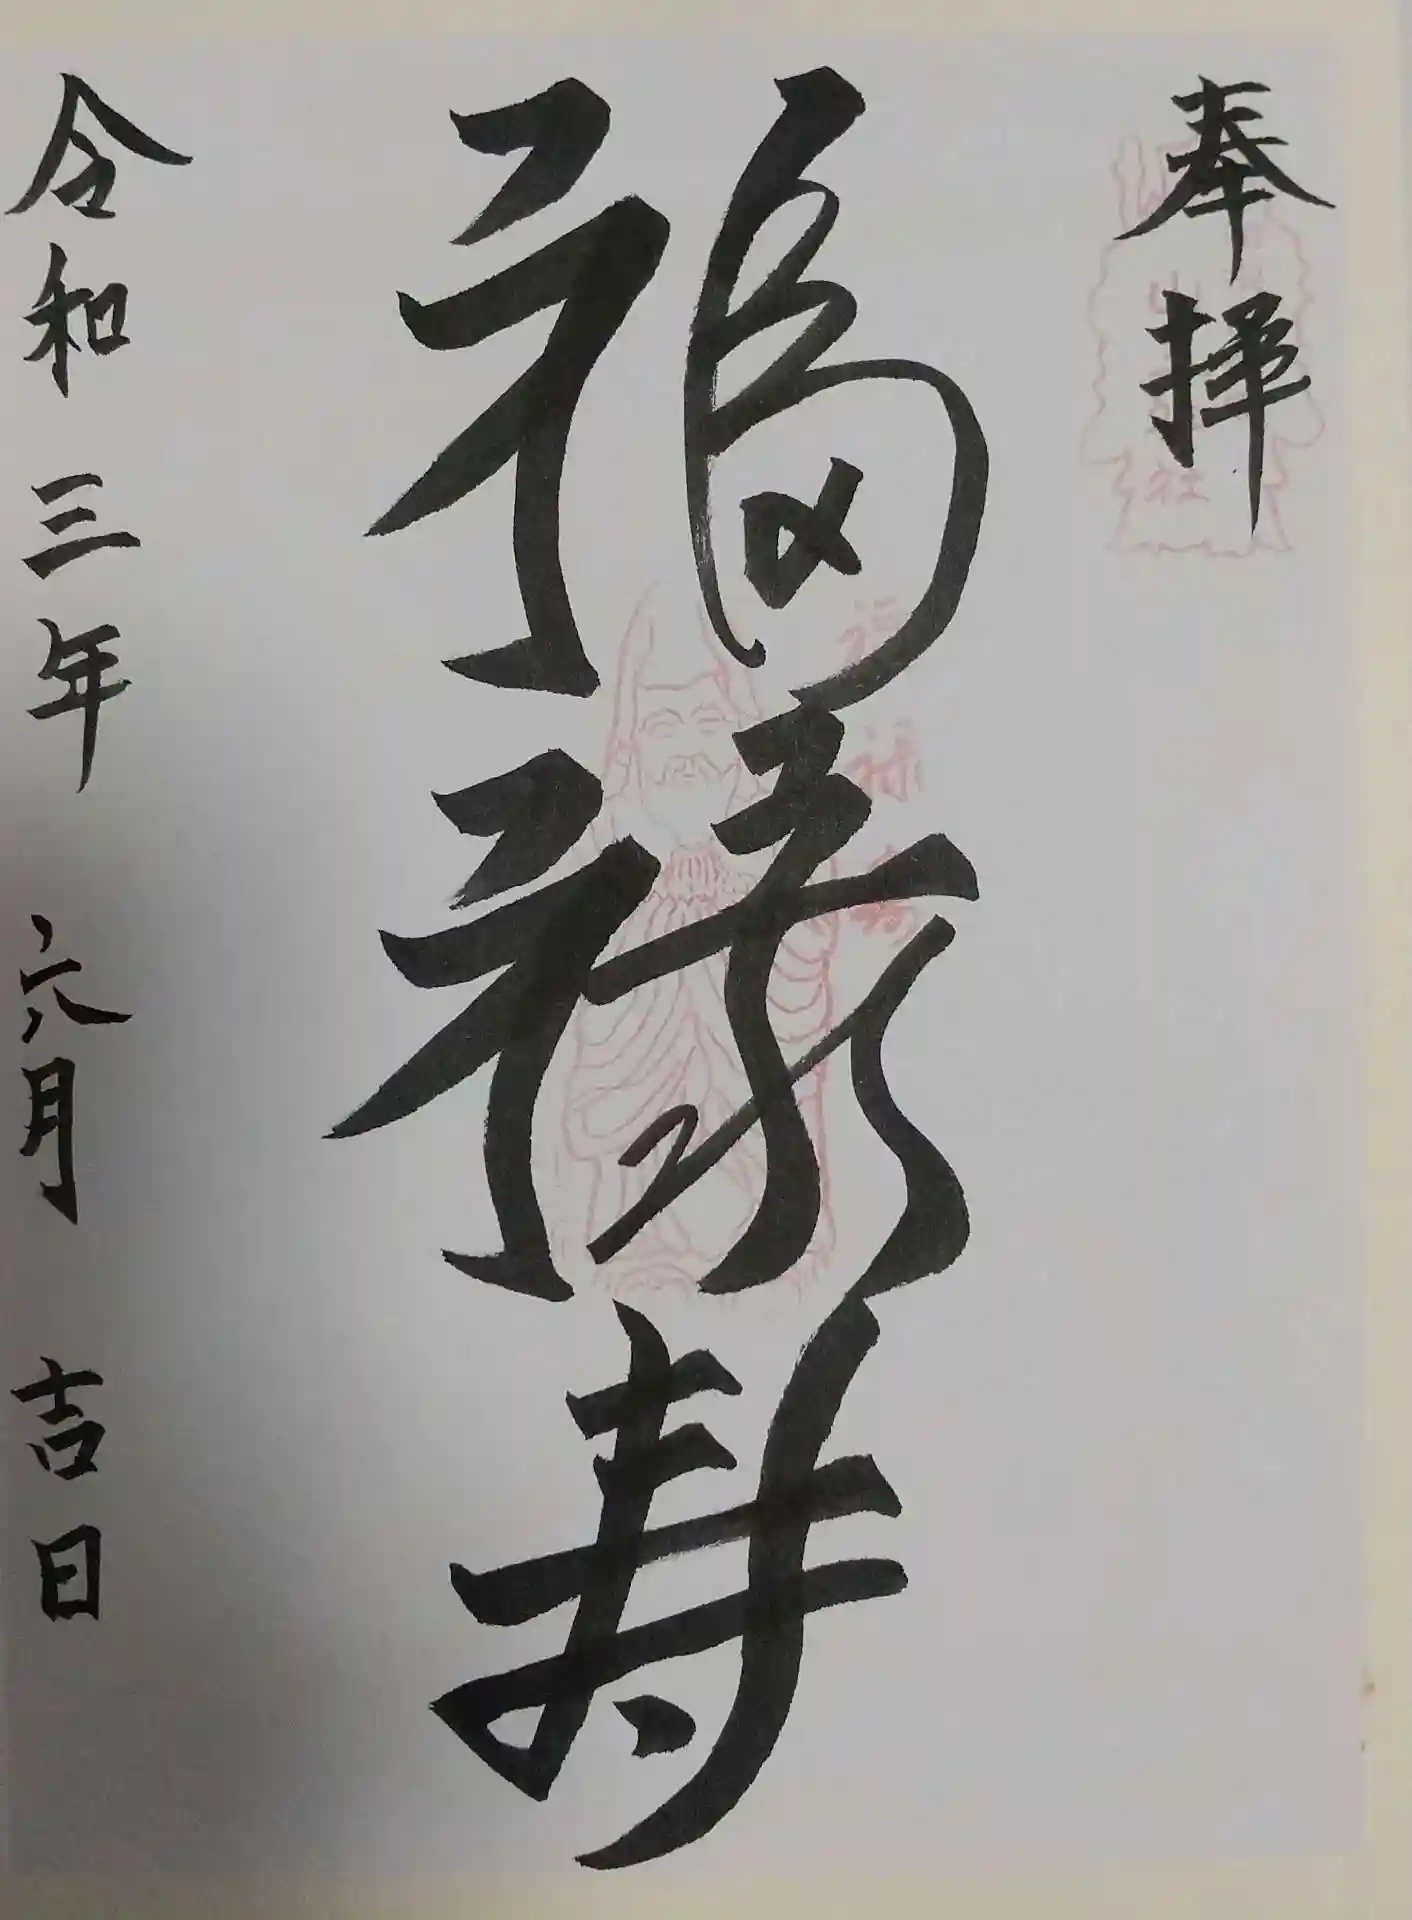 奉拝
福禄寿
福禄寿
令和三年 六月 吉日